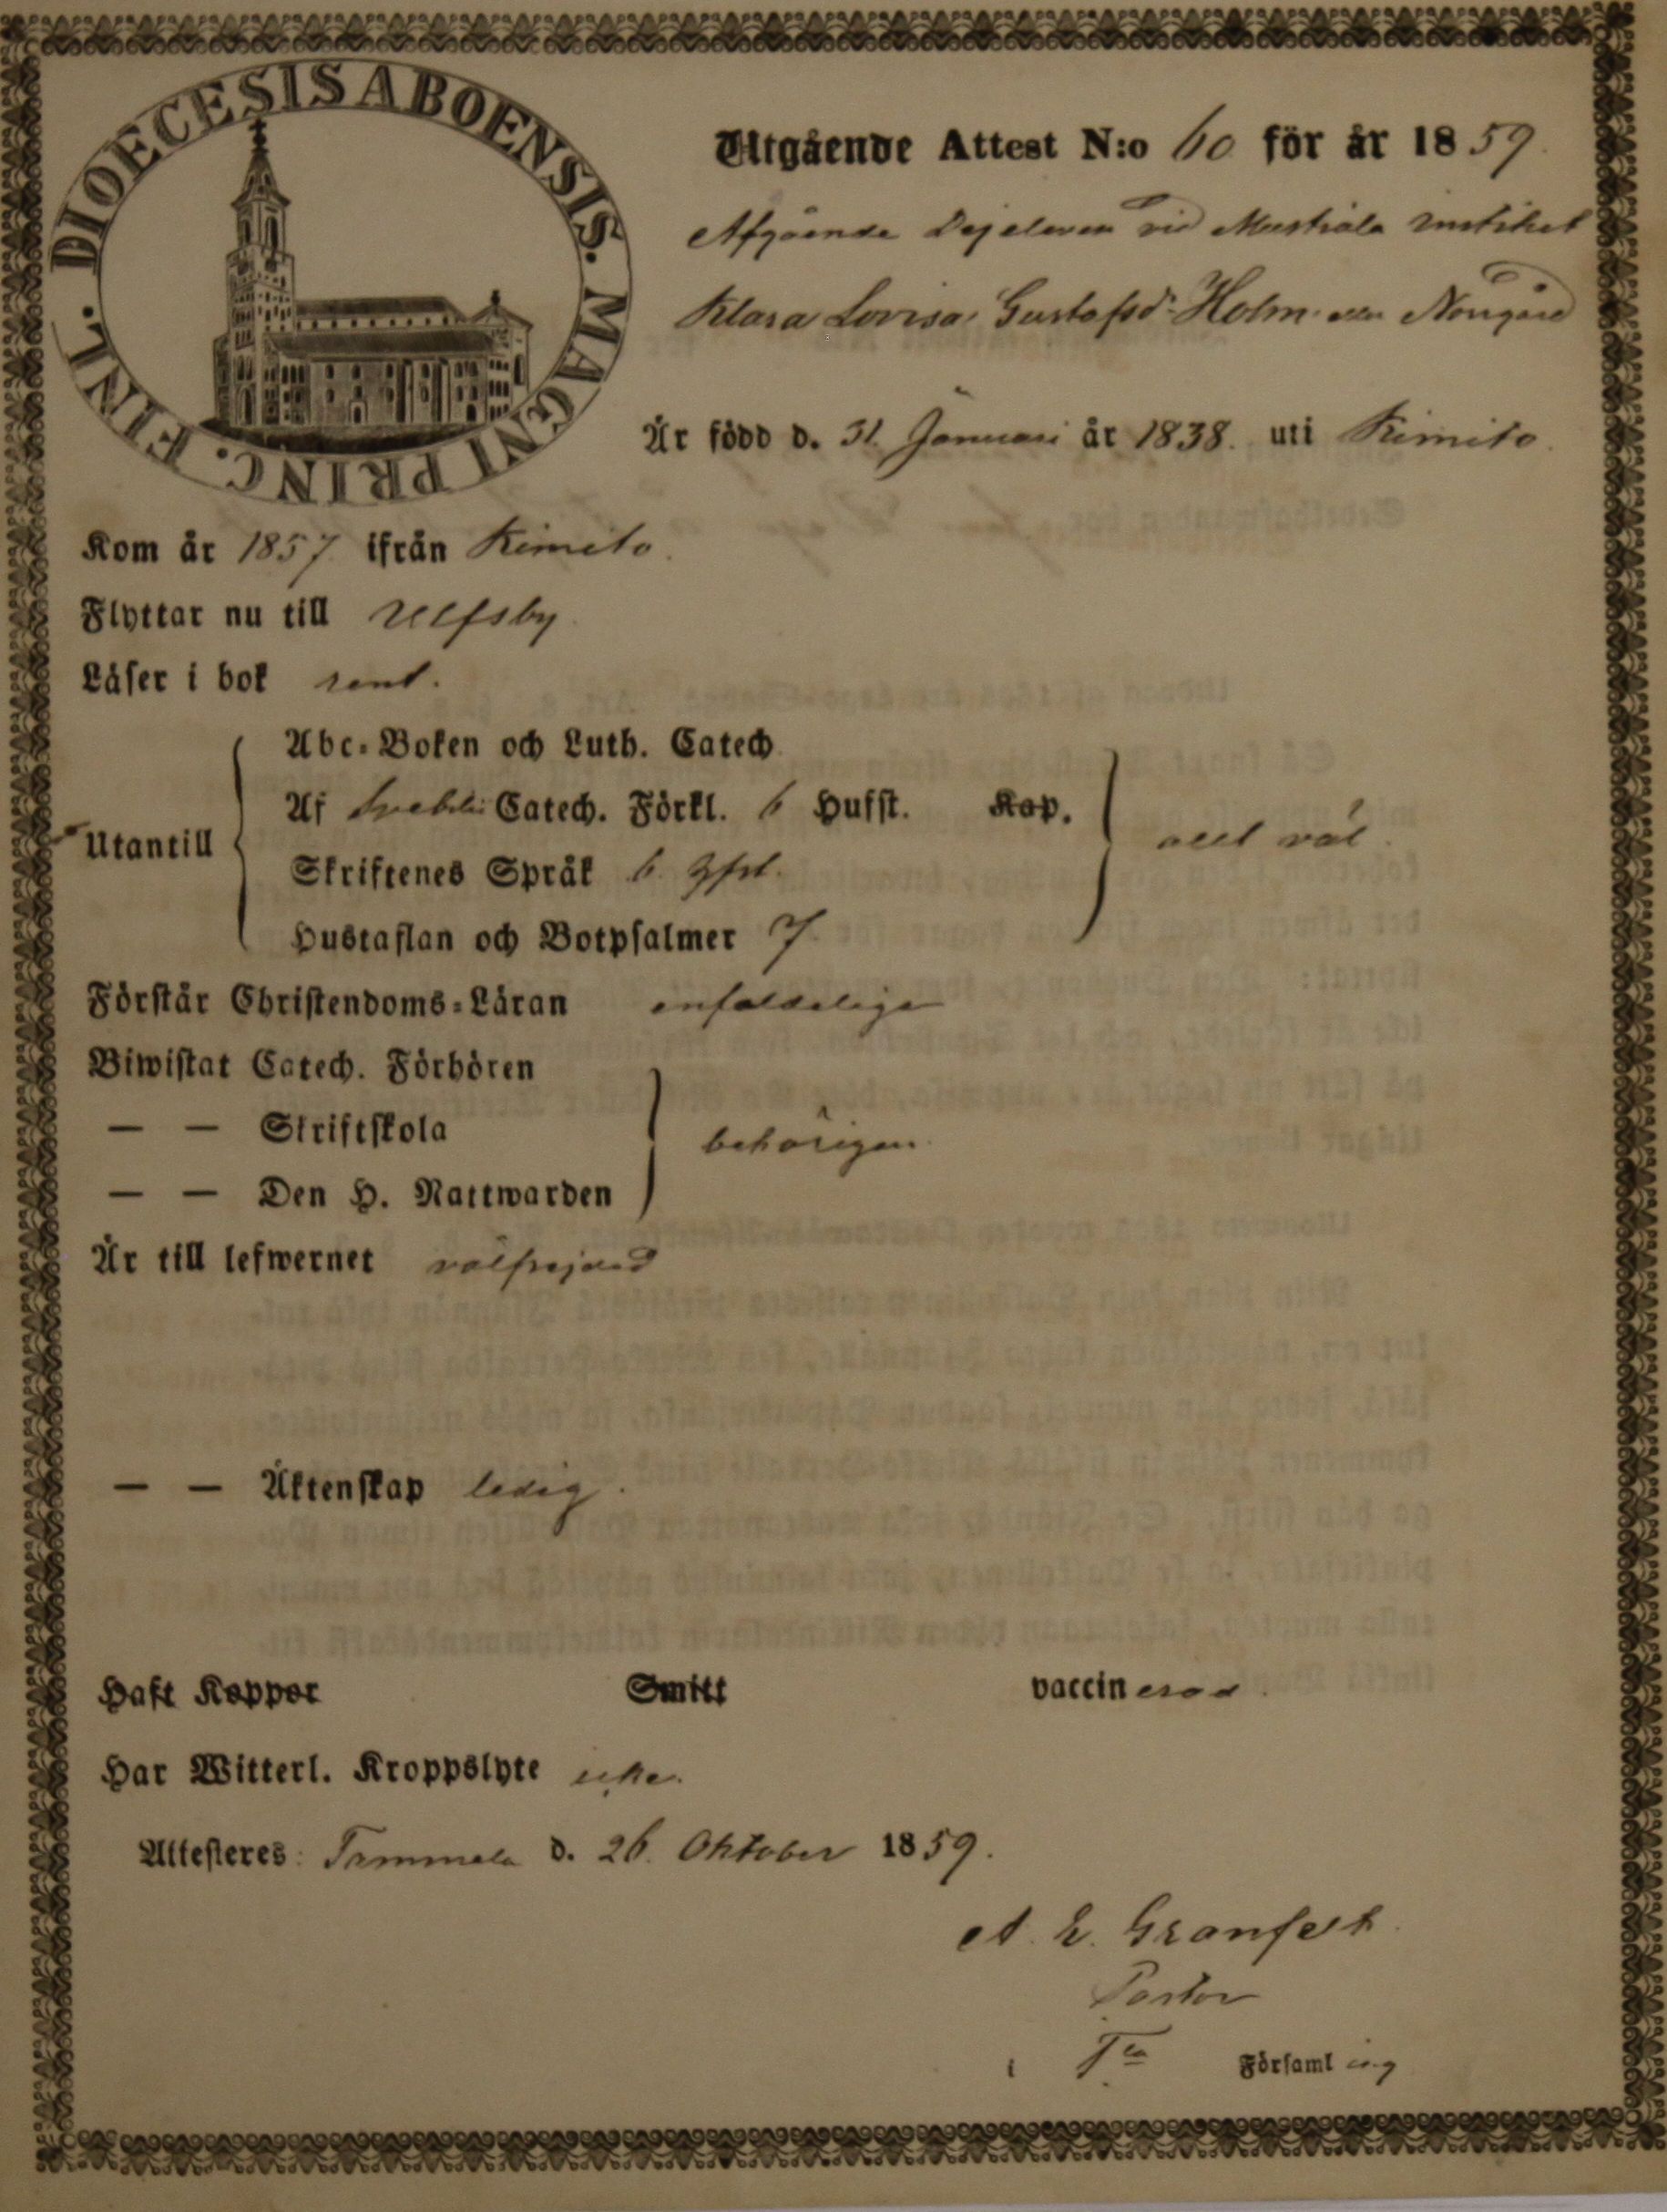 DIOECESIS ABOENSIS. MAGNI PRINC. FINL.
Utgående Attest N:o 60 för år 1859.
Afgående Dejeleven vid Mustiala Institut
Klara Lovisa Gustafsdr Holm eller Norrgård
Är född d. 31 Januari år 1838. uti Kimito.
Kom år 1857 ifrån Kimito.
Flyttar nu till Ulfsby.
Läser i bok rent.
Utantill
Abc-Boken och Luth. Catech.
Af Svebilii Catech. Förkl. 6 Hufst. Kap.
Skriftenes Språk 6
Hustaflan och Botpsalmer 7
allt väl.
Förstår Christendoms-Läran enfaldeligen
Biwistat Catech. Förhören
— — Skriftskola
— — Den H. Nattwarden
behörigen.
Är till lefwernet välfrejdad
— — Äktenskap ledig.
Haft Koppor Smitt vaccinerad.
Har Witterl. Kroppslyte icke.
Attesteres: Tammela d. 26. Oktober 1859.
A. E. Granfelt
Pastor
i Tla Församling